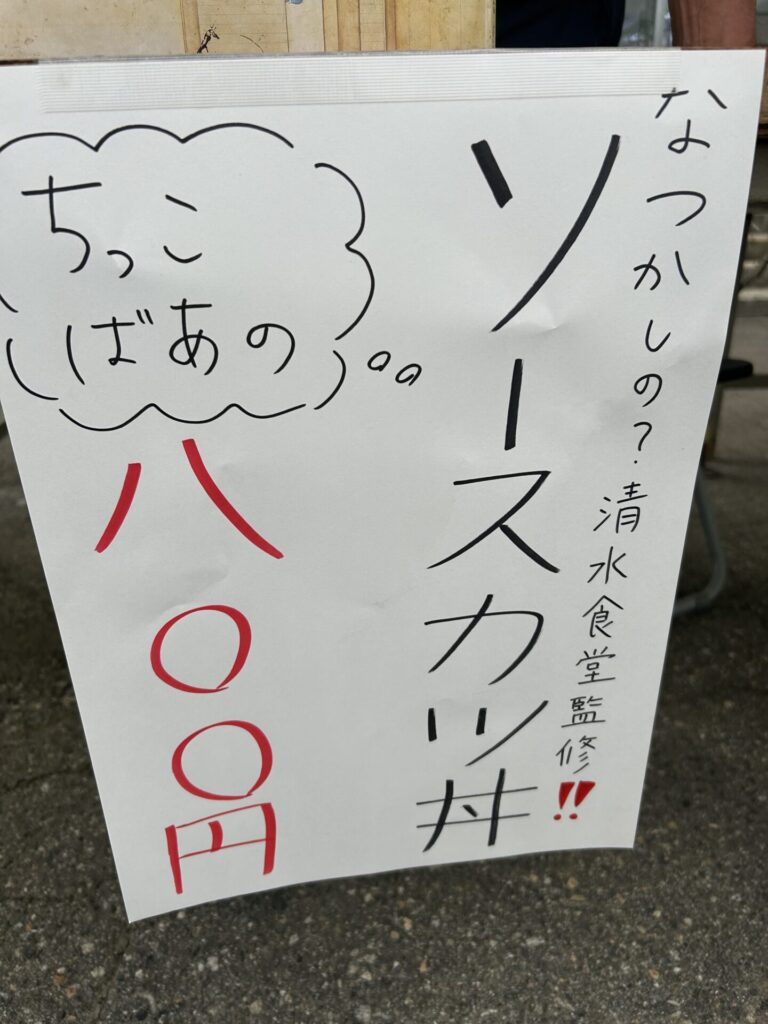 なつかしの？清水食堂監修‼
ソースカツ丼
ちっこ
ばあの
八〇〇円